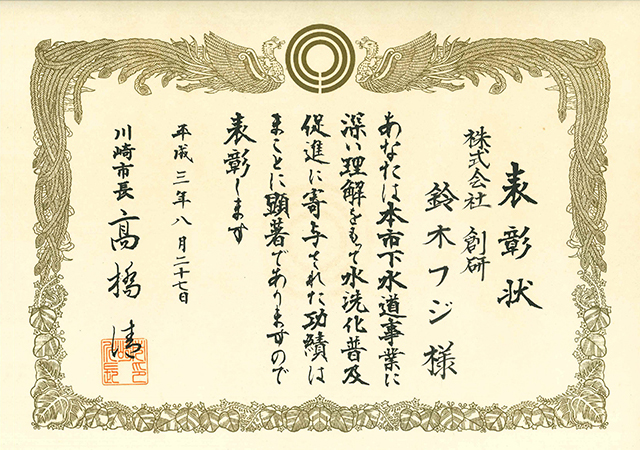 表彰状
株式会社 創研
鈴木フジ様
あなたは本市下水道事業に
深い理解をもって水洗化普及
促進に寄与された功績は
まことに顕著でありますので
表彰します
平成三年八月二十七日
川崎市長 高橋清